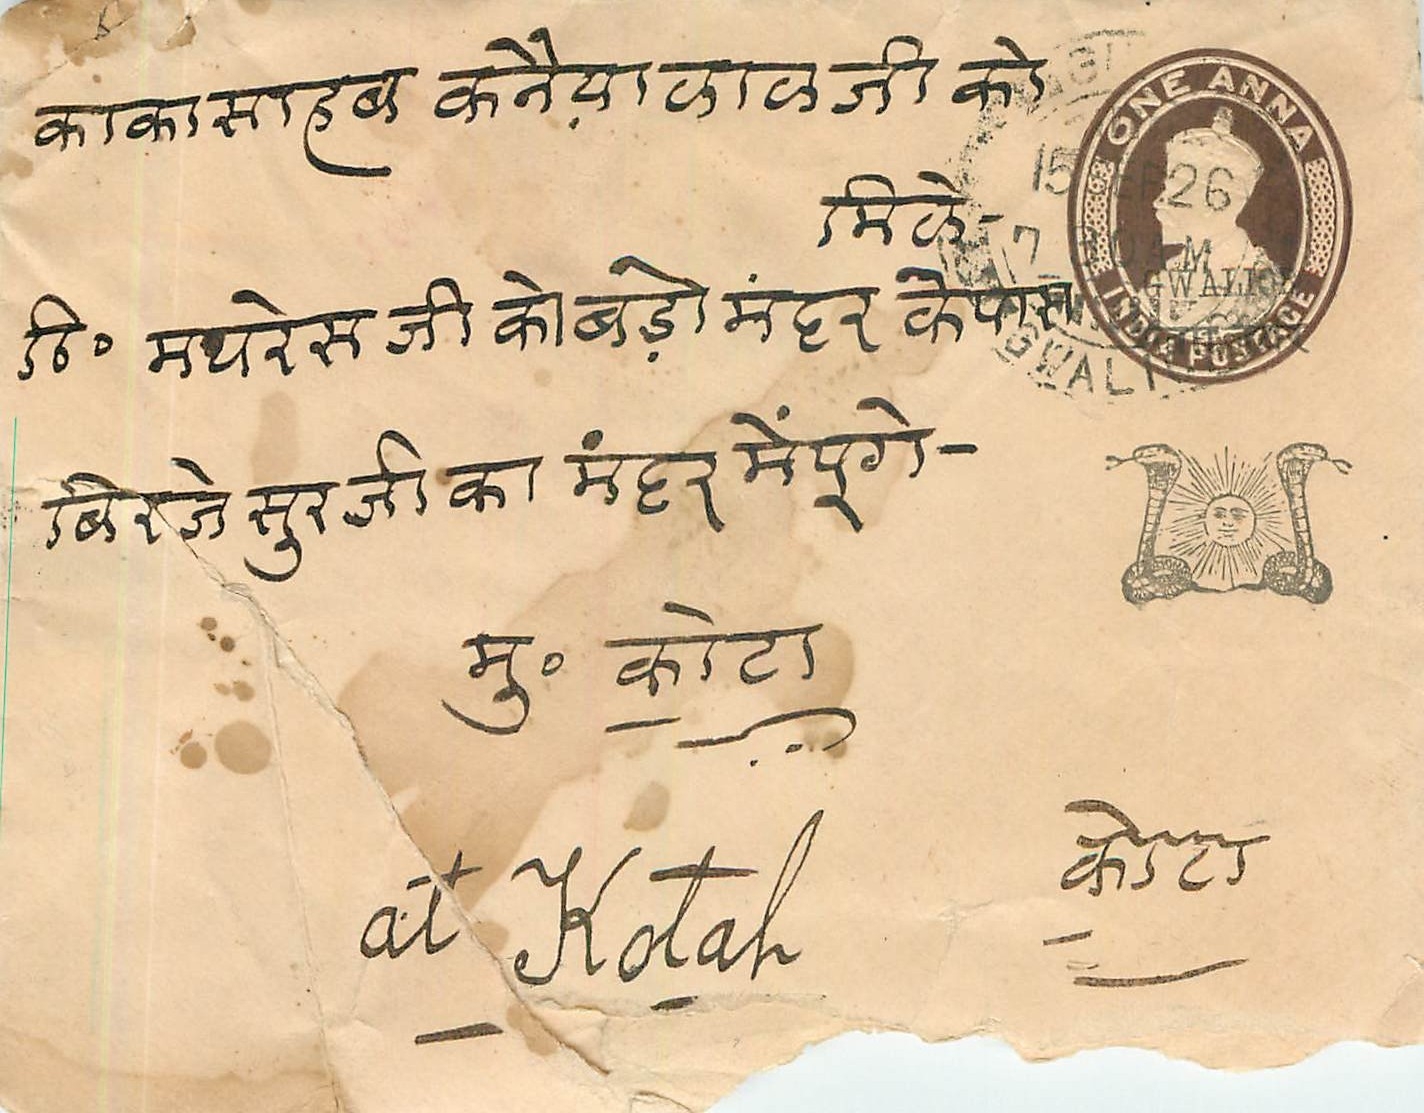 काका साहब कनैय़ा लाल जी को
मिले-
ठि० मथरेस जी को बड़ो मंद्दर के पास
बिरजेसुरजी का मंद्दर में पूगे-
मु० कोटा
at Kotah
कोटा
ONE ANNA
INDIA POSTAGE
GWALIOR
15
26
7
M
GWALI